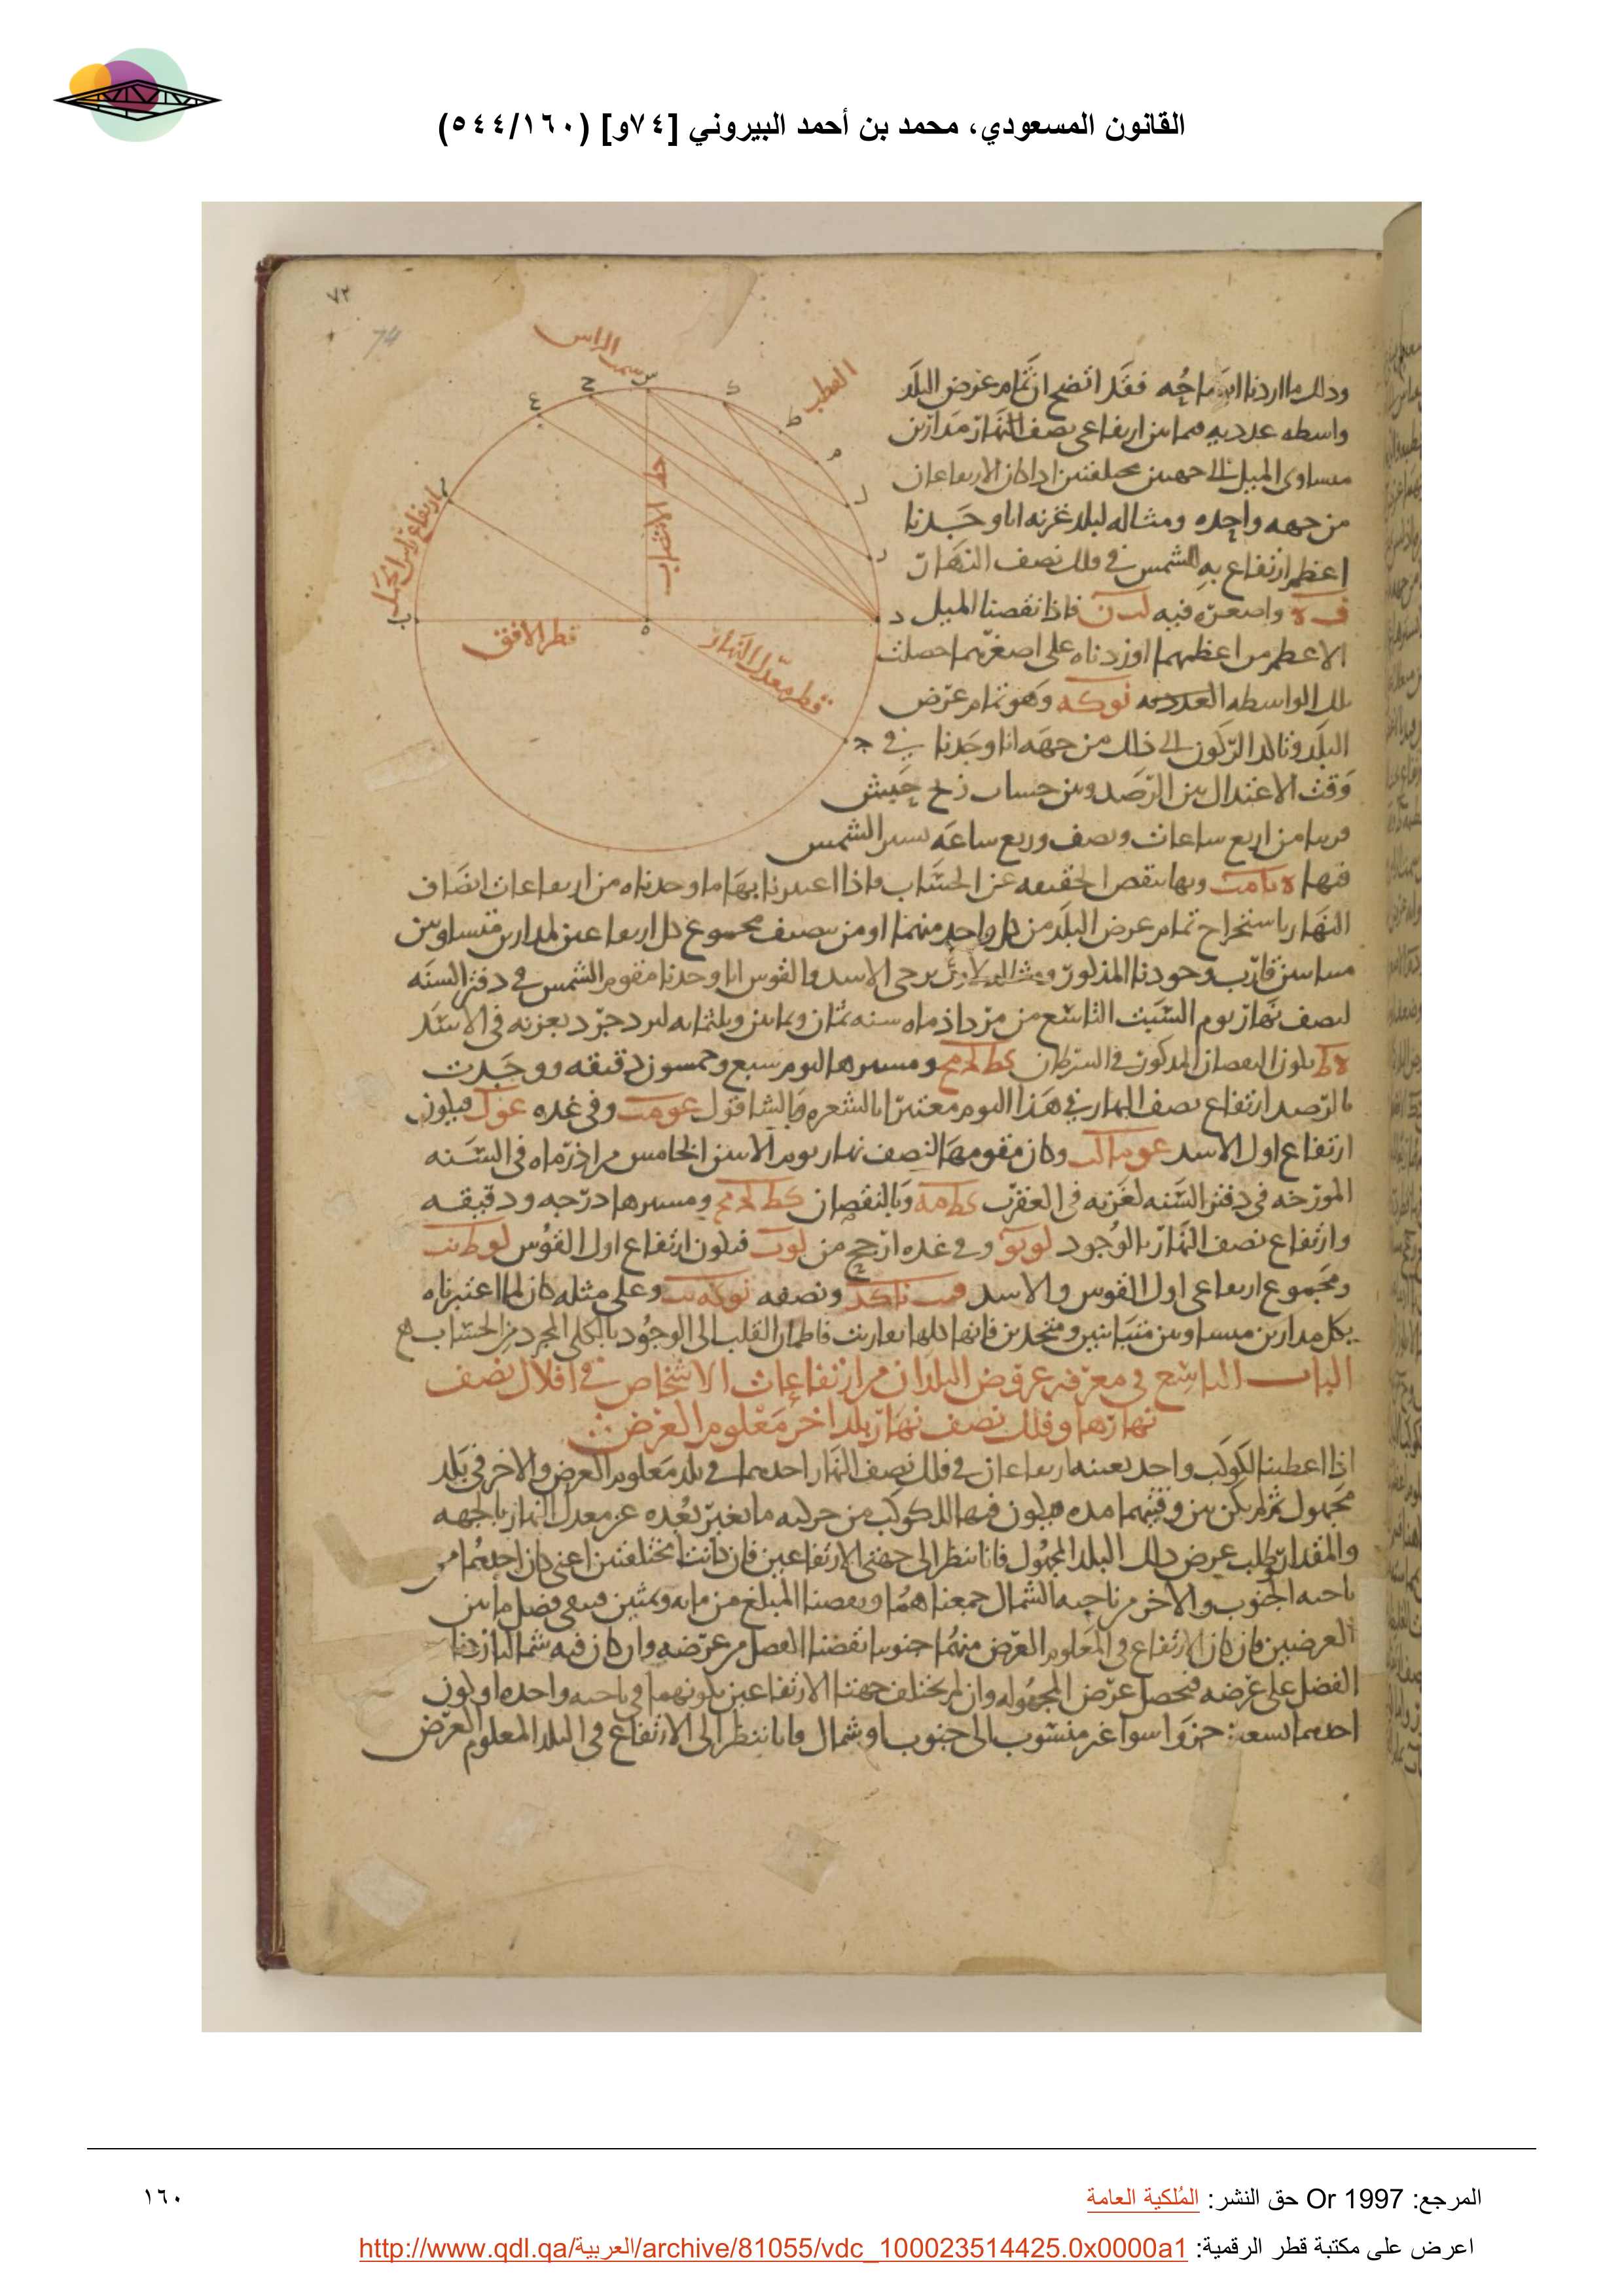 القانون المسعودي، محمد بن أحمد البيروني [٧٤و] (٥٤٤/١٦٠)
٧٢
74
سمت الراس
القطب
ارتفاع راس الحمل
خط الانتصاب
قطر الافق
قطر معدل النهار
وذلك ما اردنا ايضاحه فقد اتضح ان تمام عرض البلد
واسطه عدديه فيما بين ارتفاعى نصف النهار مدارين
متساوى الميل الى جهتين مختلفتين اذا كان الارتفاعان
من جهه واحده ومثاله لبلد غزنه انا وجدنا
اعظم ارتفاع به الشمس في فلك نصف النهار
واصغره فيه فاذا نقصنا الميل
الاعظم من اعظمهما او زدناه على اصغرهما حصلت
تلك الواسطه العدديه نو كه وهو تمام عرض
البلد وتاكد الركون الى ذلك من جهه انا وجدنا في
وقت الاعتدال بين الرصد وبين حساب زيج حبش
قريبا من اربع ساعات ونصف وربع ساعه مسير الشمس
فيها وبها ينقص الحقيقه عن الحساب واذا اعتبرنا بها ما وجدناه من ارتفاعات انصاف
النهار باستخراج تمام عرض البلد من كل واحد منهما او من نصف مجموع كل ارتفاعين لمدارين متساويين
وجودنا المذكور برجى الاسد والقوس انا وجدنا مقوم الشمس في دفتر السنه
لنصف نهار يوم السبت التاسع من مرداذ ماه سنه ثمان وثمانين وثلثمايه ليزدجرد بغزنه في الاسد
يكون النقصان المذكور في السرطان كط ومسيرها اليوم سبع وخمسون دقيقه ووجدت
بالرصد ارتفاع نصف النهار في هذا اليوم معتبرا بالشعره وبالشاقول وفي غده فيكون
ارتفاع اول الاسد وكان مقومها لنصف نهار يوم الاثنين الخامس من اذر ماه في السنه
المورخه في دفتر السنه لغزنه في العقرب كط مه وبالنقصان كط ومسيرها درجه ودقيقه
وارتفاع نصف النهار بالوجود وفي غده ارجح من فيكون ارتفاع اول القوس
ومجموع ارتفاعى اول القوس والاسد ونصفه وعلى مثله كان لما اعتبرناه
بكل مدارين متساويين متباينين ومتحدين فانها كلها تقاربت فاطمان القلب الى الوجود بالكلى المجرد من الحساب
الباب التاسع في معرفه عروض البلدان من ارتفاعات الاشخاص في افلاك نصف
نهارها وفلك نصف نهار بلد اخر معلوم العرض
اذا اعطينا لكوكب واحد بعينه ارتفاعان في فلك نصف النهار احدهما في بلد معلوم العرض والاخر في بلد
مجهول ثم لم يكن بين وقتيهما مده يكون فيها للكوكب من حركته ما يغير بعده عن معدل النهار بالجهه
والمقدار وطلب عرض ذلك البلد المجهول فانا ننظر الى جهتى الارتفاعين فان كانتا مختلفتين اعنى كان احدهما من
ناحيه الجنوب والاخر من ناحيه الشمال جمعناهما ونقصنا المبلغ من مايه وثمنين فيبقى فضل ما بين
العرضين فان كان الارتفاع في المعلوم العرض منهما جنوبيا نقصنا الفضل من عرضه وان كان فيه شماليا زدنا
الفضل على عرضه فيحصل عرض المجهوله وان لم يختلف جهتا الارتفاعين بكونهما في ناحيه واحده او لكون
احدهما تسعين جزوا سوا غير منسوب الى جنوب او شمال فانا ننظر الى الارتفاع في البلد المعلوم العرض
المرجع: Or 1997 حق النشر: المُلكية العامة
١٦٠
اعرض على مكتبة قطر الرقمية: http://www.qdl.qa/العربية/archive/81055/vdc_100023514425.0x0000a1